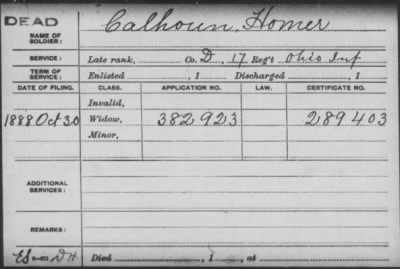 DEAD
NAME OF SOLDIER: Calhoun, Homer
SERVICE: Late rank, Co. D, 17 Reg't Ohio Inf
TERM OF SERVICE: Enlisted , 1 Discharged , 1
DATE OF FILING. CLASS. APPLICATION NO. LAW. CERTIFICATE NO.
Invalid,
1888 Oct 30 Widow, 382923 289403
Minor,
ADDITIONAL SERVICES:
REMARKS:
Died , 1 , at